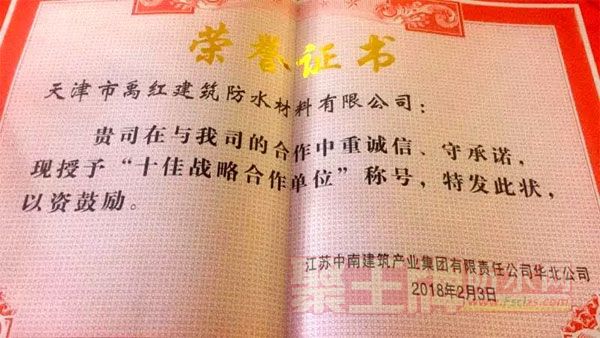 荣誉证书
天津市禹红建筑防水材料有限公司：
贵司在与我司的合作中重诚信、守承诺，
现授予“十佳战略合作单位”称号，特发此状，
以资鼓励。
江苏中南建筑产业集团有限责任公司华北公司
2018年2月3日